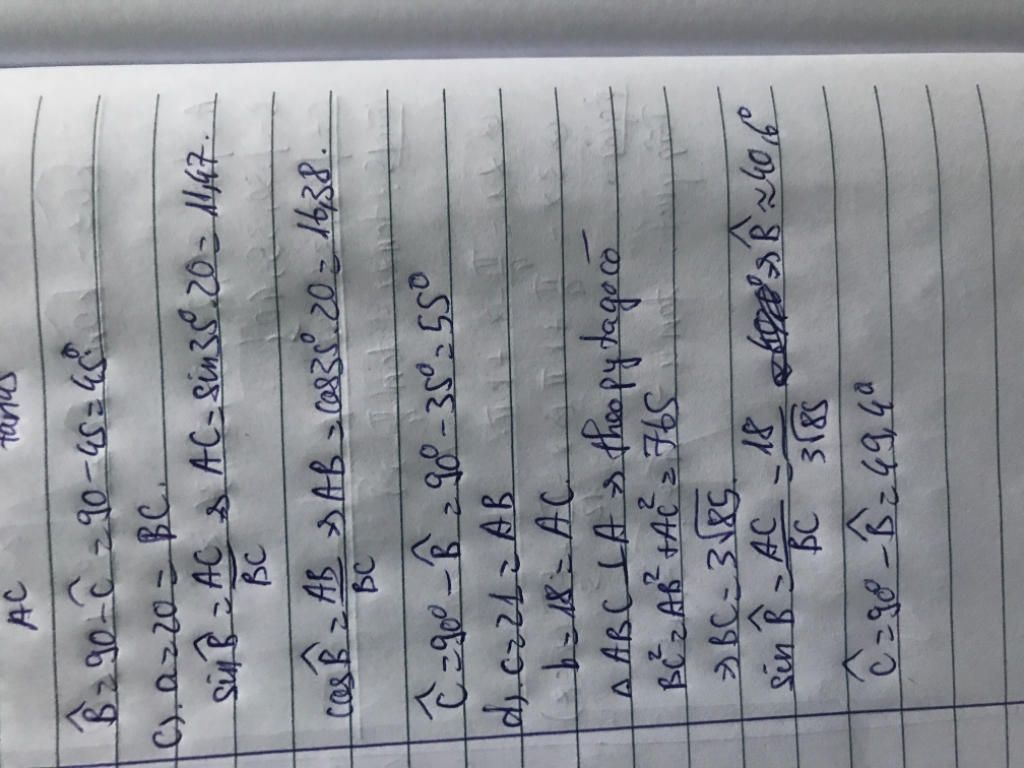 AC
tan45
B̂ = 90 - Ĉ = 90 - 45 = 45°.
c). a = 20 = BC.
sin B̂ = AC/BC => AC = sin35°.20 = 11,47.
cos B̂ = AB/BC => AB = cos35°.20 = 16,38.
Ĉ = 90° - B̂ = 90° - 35° = 55°
d), c = 21 = AB
b = 18 = AC
Δ ABC ⊥ A => theo pytago có
BC² = AB² + AC² = 765
=> BC = 3√85.
sin B̂ = AC/BC = 18/3√85 => B̂ ≈ 40,6°
Ĉ = 90° - B̂ = 49,4°